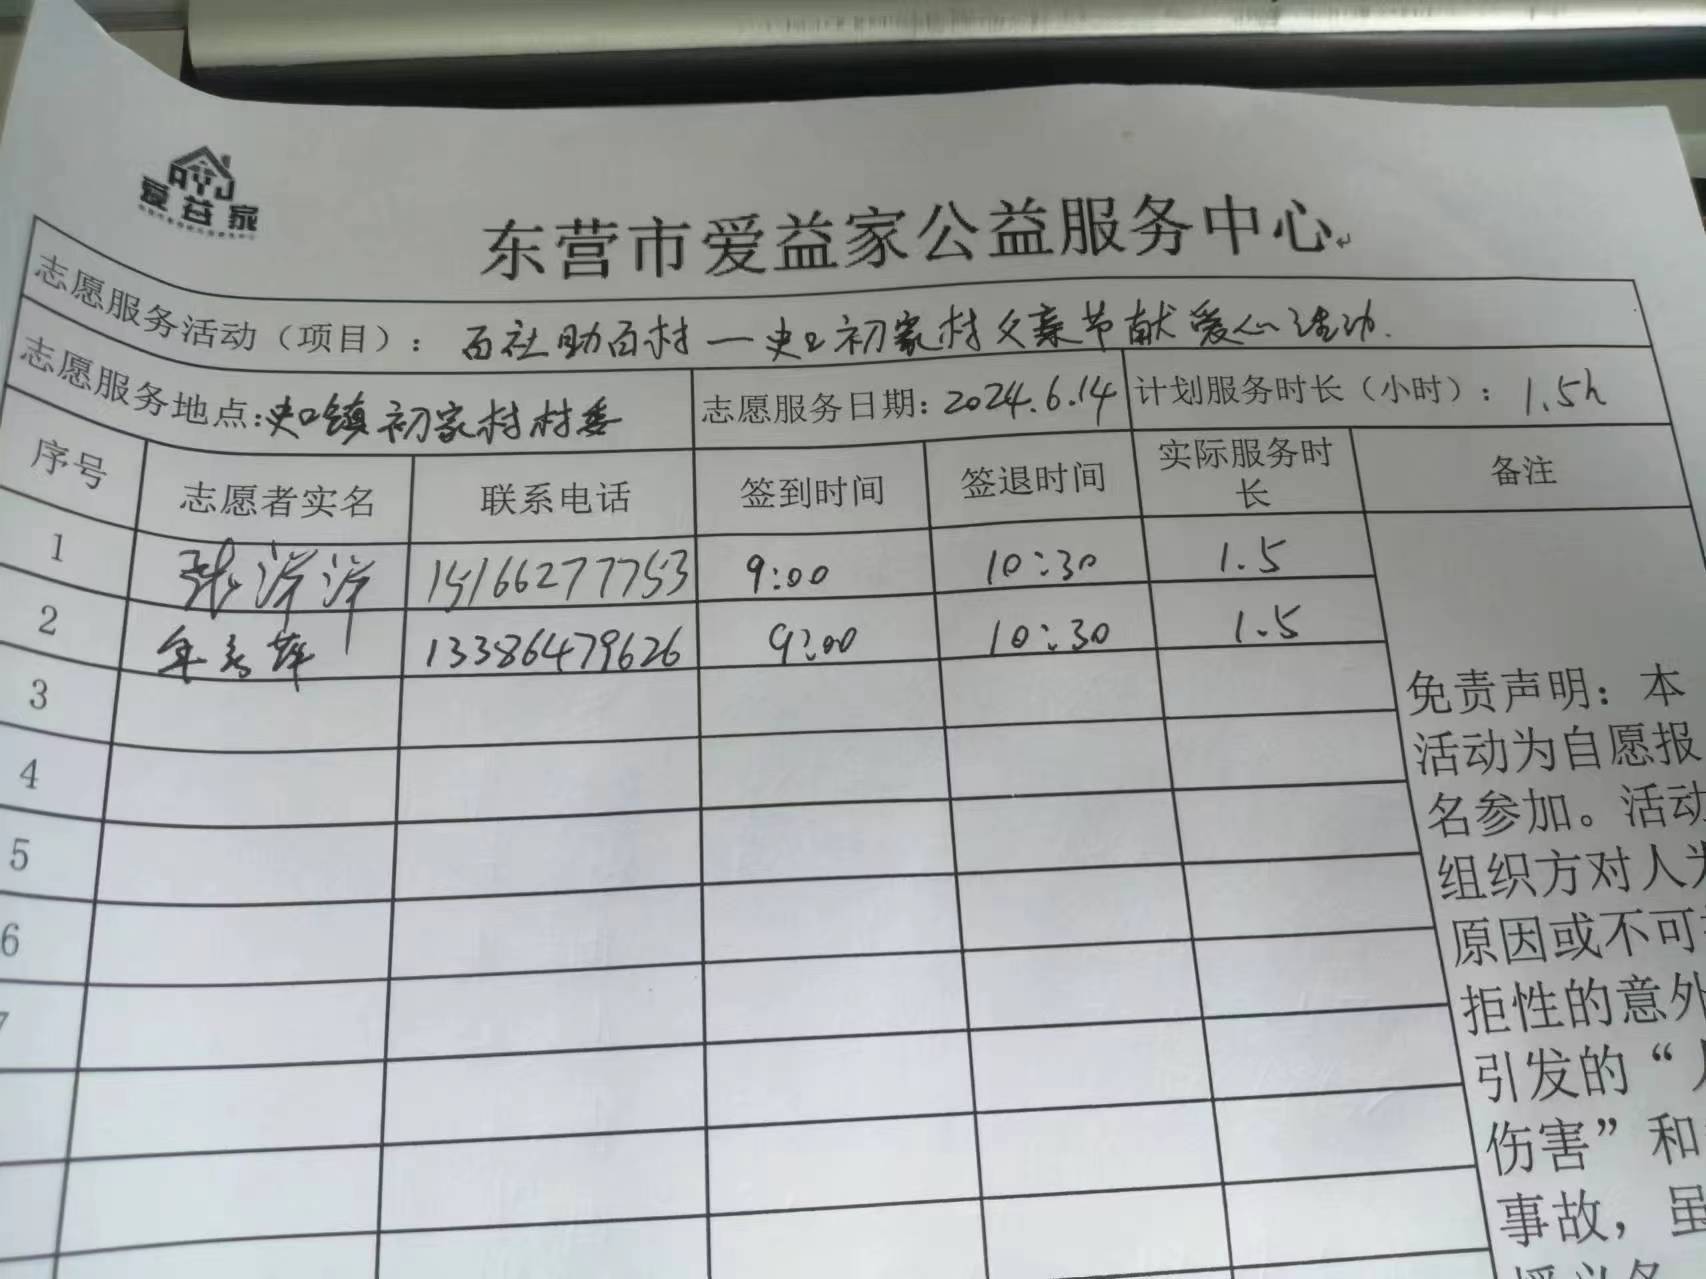 AYJ
爱益家
东营市爱益家公益服务中心
志愿服务活动（项目）：百社助百村—史口初家村父亲节献爱心活动.
志愿服务地点:史口镇初家村村委 志愿服务日期:2024.6.14 计划服务时长（小时）：1.5h
序号 志愿者实名 联系电话 签到时间 签退时间 实际服务时长 备注
1 张洋洋 15166277753 9:00 10:30 1.5
2 13386479626 9:00 10:30 1.5
3
4
5
6
7
免责声明：本
活动为自愿报
名参加。活动
组织方对人为
原因或不可
拒性的意外
引发的“
伤害”和
事故，虽